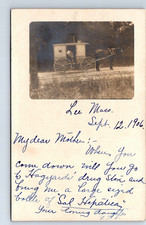 Lee Mass.
Sept. 12, 1906.
My dear Mother:-
When you
come down will you go
to Hagyards' drug store and
bring me a large sized
bottle of "Sal Hepatica".
Your loving daughter